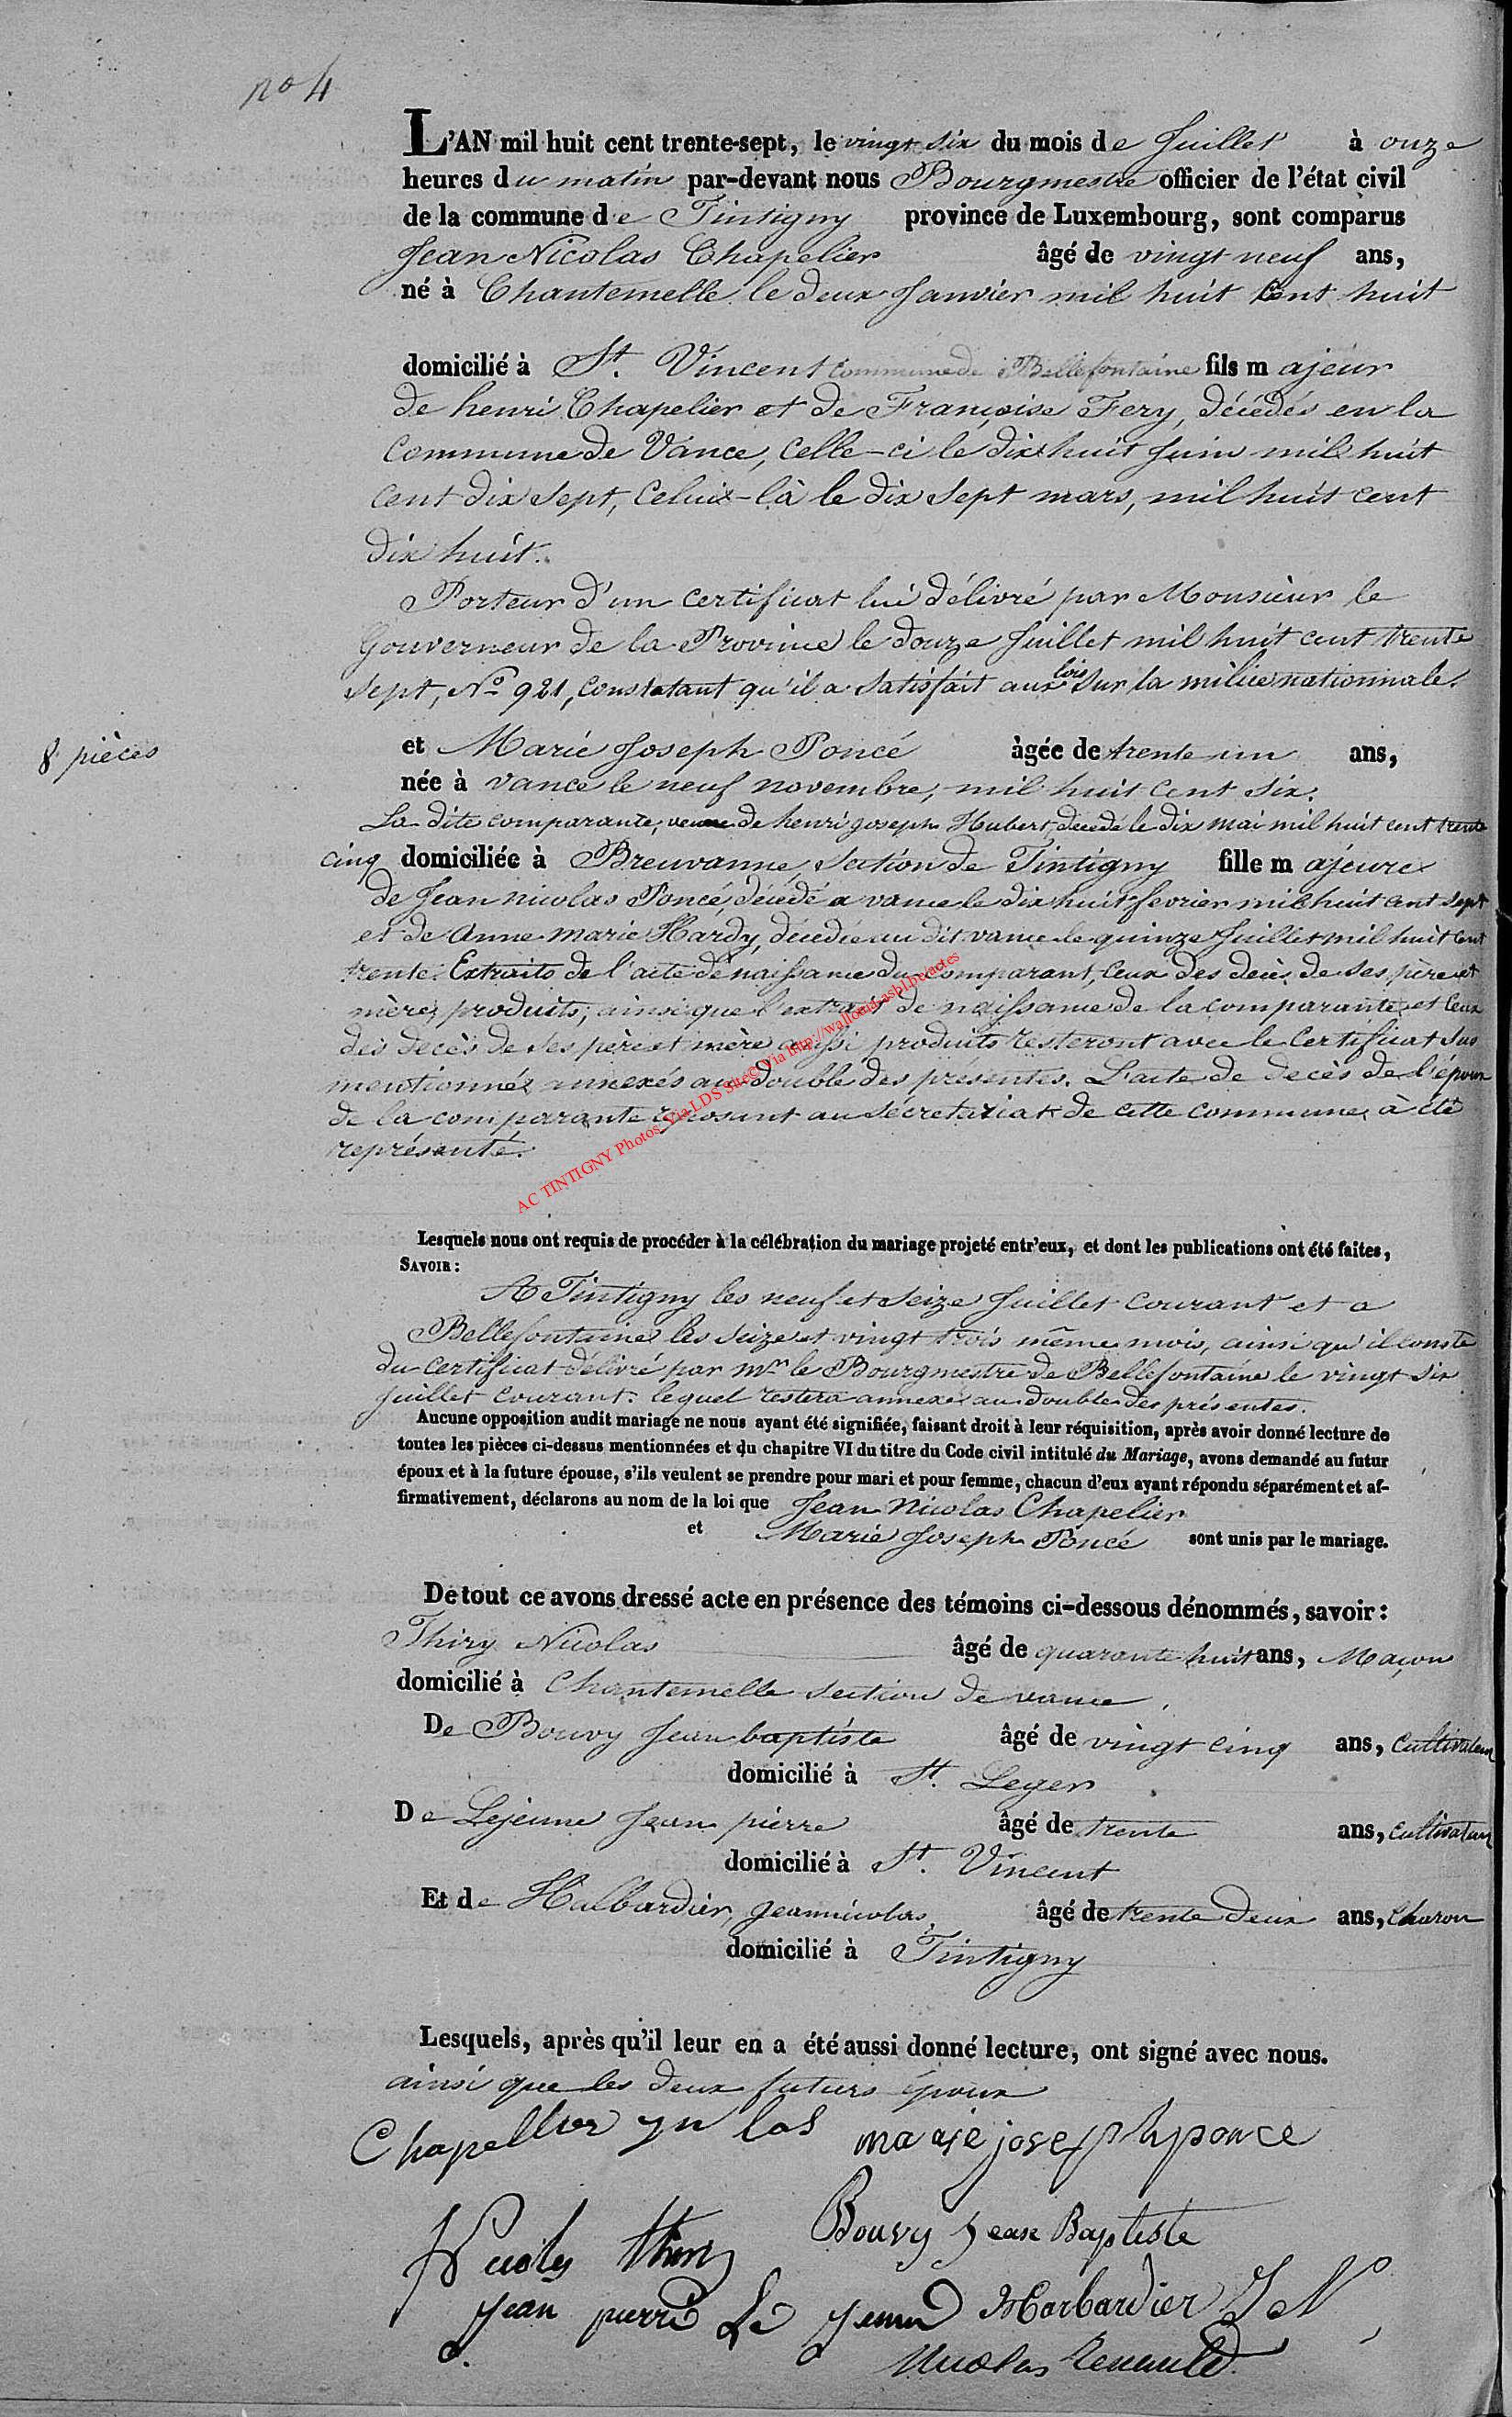 no 4
L'AN mil huit cent trente-sept, le vingt six du mois de Juillet à onze
heures du matin par-devant nous Bourgmestre officier de l'état civil
de la commune de Tintigny province de Luxembourg, sont comparus
Jean Nicolas Chapelier âgé de vingt neuf ans,
né à Chantemelle le deux Janvier mil huit Cent huit
domicilié à St. Vincent commune de Bellefontaine fils majeur
de henri Chapelier et de Françoise Fery, décédés en la
Commune de Vance, Celle-ci le dix huit Juin mil huit
cent dix sept, Celui-là le dix sept mars, mil huit cent
dix huit.
Porteur d'un certificat lui délivré par Monsieur le
Gouverneur de la Province le douze Juillet mil huit cent trente
sept, No 921, constatant qu'il a satisfait aux lois sur la milice nationnale.
8 pièces
et Marie Joseph Poncé âgée de trente un ans,
née à vance le neuf novembre, mil huit Cent six.
La dite comparante, veuve de henri joseph Hubert, decedé le dix mai mil huit cent trente
cinq domiciliée à Breuvanne, Section de Tintigny fille majeure
de Jean nicolas Poncé, décédé a vance le dix huit fevrier mil huit cent sept
et de Anne marie Hardy, décédée au dit vance le quinze Juillet mil huit cent
trente. Extraits de l'acte de naissance du comparant, Ceux des décès de ses père et
mère, produits; ainsi que l'extrait de naissance de la comparante et ceux
des decès de ses père et mère aussi produits resteront avec le Certificat sus
mentionnés annexés au double des presentes. L'acte de decès de l'époux
de la comparante reposant au sécretariat de cette commune, à été
représenté.
AC TINTIGNY Photos Via LDS Site© Via http://wallonia-asbl.be/actes
Lesquels nous ont requis de procéder à la célébration du mariage projeté entr'eux, et dont les publications ont été faites,
SAVOIR:
A Tintigny les neuf et seize Juillet courant et a
Bellefontaine les seize et vingt trois même mois, ainsi qu'il conste
du certificat délivré par Mr le Bourgmestre de Bellefontaine le vingt six
Juillet courant: lequel restera annexé au double des présentes.
Aucune opposition audit mariage ne nous ayant été signifiée, faisant droit à leur réquisition, après avoir donné lecture de
toutes les pièces ci-dessus mentionnées et du chapitre VI du titre du Code civil intitulé du Mariage, avons demandé au futur
époux et à la future épouse, s'ils veulent se prendre pour mari et pour femme, chacun d'eux ayant répondu séparément et af-
firmativement, déclarons au nom de la loi que Jean Nicolas Chapelier
et Marie Joseph Poncé sont unis par le mariage.
De tout ce avons dressé acte en présence des témoins ci-dessous dénommés, savoir:
Thiry Nicolas âgé de quarante huit ans, Maçon
domicilié à Chantemelle section de vance,
De Bouvy Jean baptiste âgé de vingt cinq ans, cultivateur
domicilié à St. Leger
De Lejeune Jean pierre âgé de trente ans, cultivateur
domicilié à St. Vincent
Et de Halbardier, Jean nicolas, âgé de trente deux ans, Charon
domicilié à Tintigny
Lesquels, après qu'il leur en a été aussi donné lecture, ont signé avec nous.
ainsi que les deux futurs époux
Chapellier marie joseph ponce
Nicolas thiry Bouvy Jean Baptiste
Jean pierre Le Jeune Harbardier J N
Nicolas Renauld